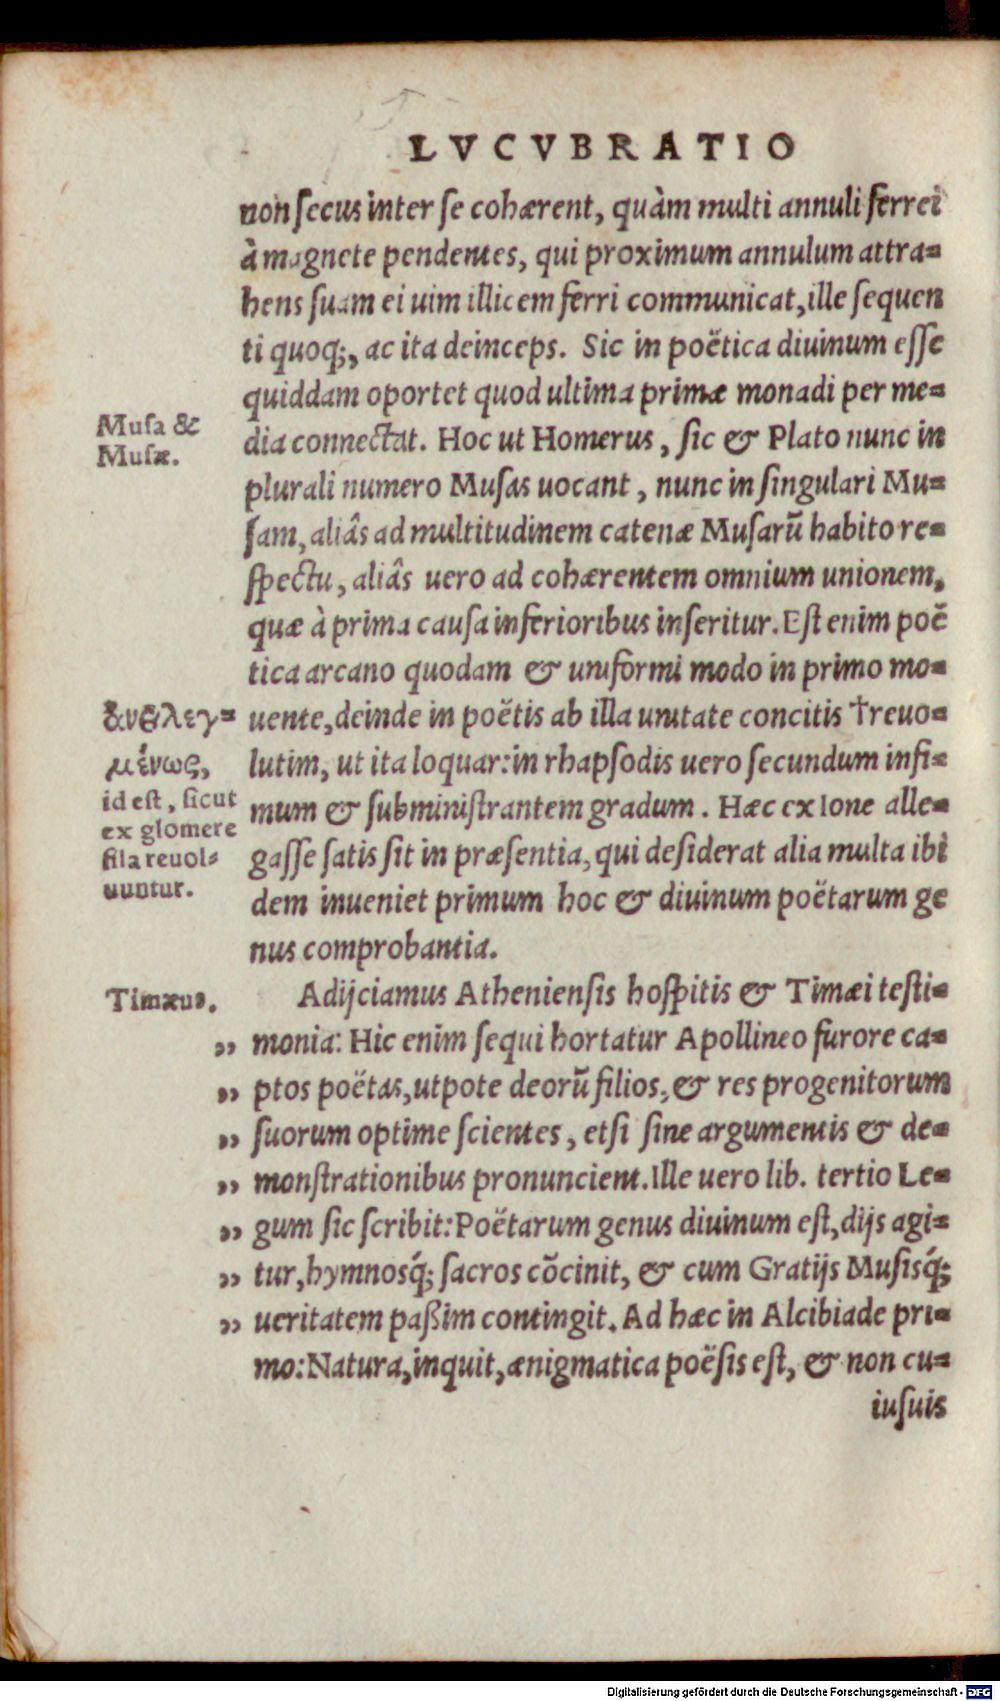 LVCVBRATIO
non ſecus inter ſe cohærent, quàm multi annuli ferrei
à magnete pendentes, qui proximum annulum attra-
hens ſuam ei uim illicem ferri communicat, ille ſequen
ti quoq;, ac ita deinceps. Sic in poëtica diuinum eſſe
quiddam oportet quod ultima primæ monadi per me-
Muſa &
Muſæ.
dia connectat. Hoc ut Homerus, ſic & Plato nunc in
plurali numero Muſas uocant, nunc in ſingulari Mu-
ſam, aliâs ad multitudinem catenæ Muſarũ habito re-
ſpectu, aliâs uero ad cohærentem omnium unionem,
quæ à prima cauſa inferioribus inſeritur. Eſt enim poë
tica arcano quodam & uniformi modo in primo mo-
uente, deinde in poëtis ab illa unitate concitis †reuo-
lutim, ut ita loquar: in rhapſodis uero ſecundum infi-
id eſt, ſicut
ex glomere
fila reuol-
uuntur.
mum & ſubminiſtrantem gradum. Hæc ex Ione alle-
gaſſe ſatis ſit in præſentia, qui deſiderat alia multa ibi
dem inueniet primum hoc & diuinum poëtarum ge
nus comprobantia.
Timæus.
Adijciamus Athenienſis hoſpitis & Timæi teſti-
„ monia: Hic enim ſequi hortatur Apollineo furore ca-
„ ptos poëtas, utpote deorũ filios, & res progenitorum
„ ſuorum optime ſcientes, etſi ſine argumentis & de-
„ monſtrationibus pronuncient. Ille uero lib. tertio Le-
„ gum ſic ſcribit: Poëtarum genus diuinum eſt, dijs agi-
„ tur, hymnosq́; ſacros cõcinit, & cum Gratijs Muſisq́;
„ ueritatem paßim contingit. Ad hæc in Alcibiade pri-
mo: Natura, inquit, ænigmatica poëſis eſt, & non cu-
iuſuis
Digitalisierung gefördert durch die Deutsche Forschungsgemeinschaft - DFG